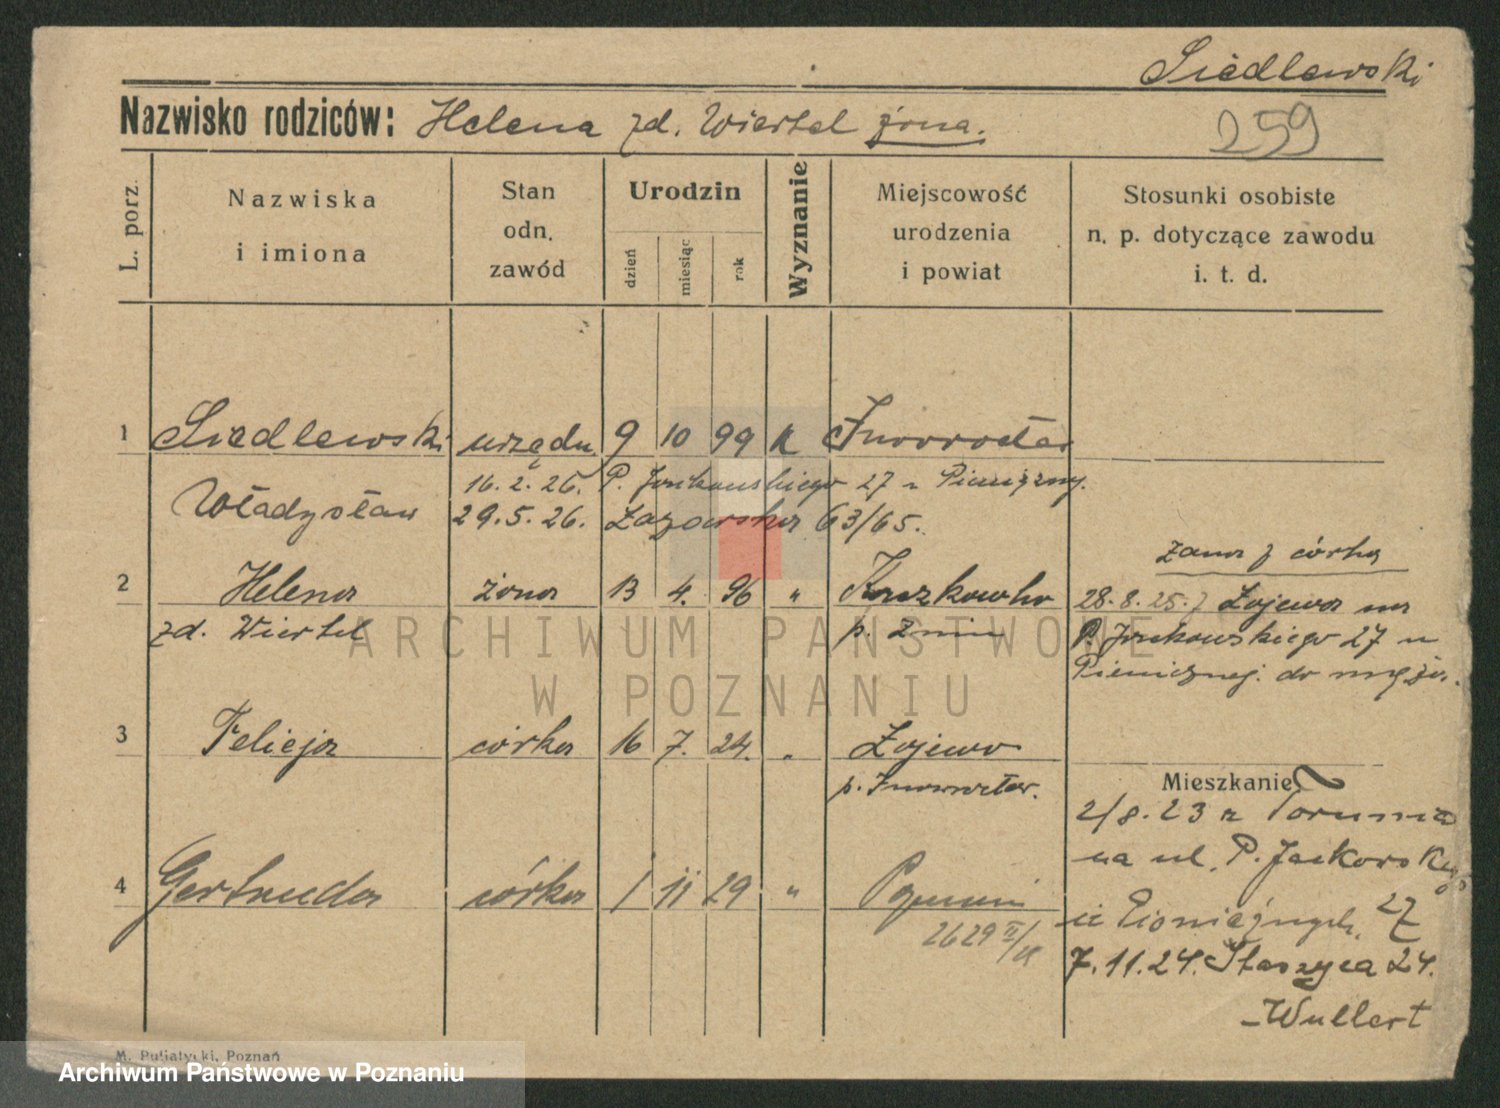 Siedlewski
Nazwisko rodziców: Helena zd. Wiertel żona.
259
L. porz.
Nazwiska
i imiona
Stan
odn.
zawód
Urodzin
dzień
miesiąc
rok
Wyznanie
Miejscowość
urodzenia
i powiat
Stosunki osobiste
n. p. dotyczące zawodu
i. t. d.
1 Siedlewski urzędn 9 10 99 K
16. 2. 26. P. Jackowskiego 27 u Pieniężny.
Władysław 29. 5. 26. 63/65.
z córką
2 Helena żona 13 4. 96 "
28. 8. 25. z Łojewa na
zd. Wiertel p. Żnin P. Jackowskiego 27 u
Pieniężnej. do męża.
3 Felicja córka 16 7. 24. " Łojewo
p. Inowrocław.
Mieszkanie
2/8. 23 z Torunia
na ul. P. Jackowskiego
4 Gertruda córka 1 11 29 " Poznań
27
2629
7. 11. 24. Staszyca 24.
Wullert
M. Putiatycki, Poznań
ARCHIWUM PAŃSTWOWE
W POZNANIU
Archiwum Państwowe w Poznaniu